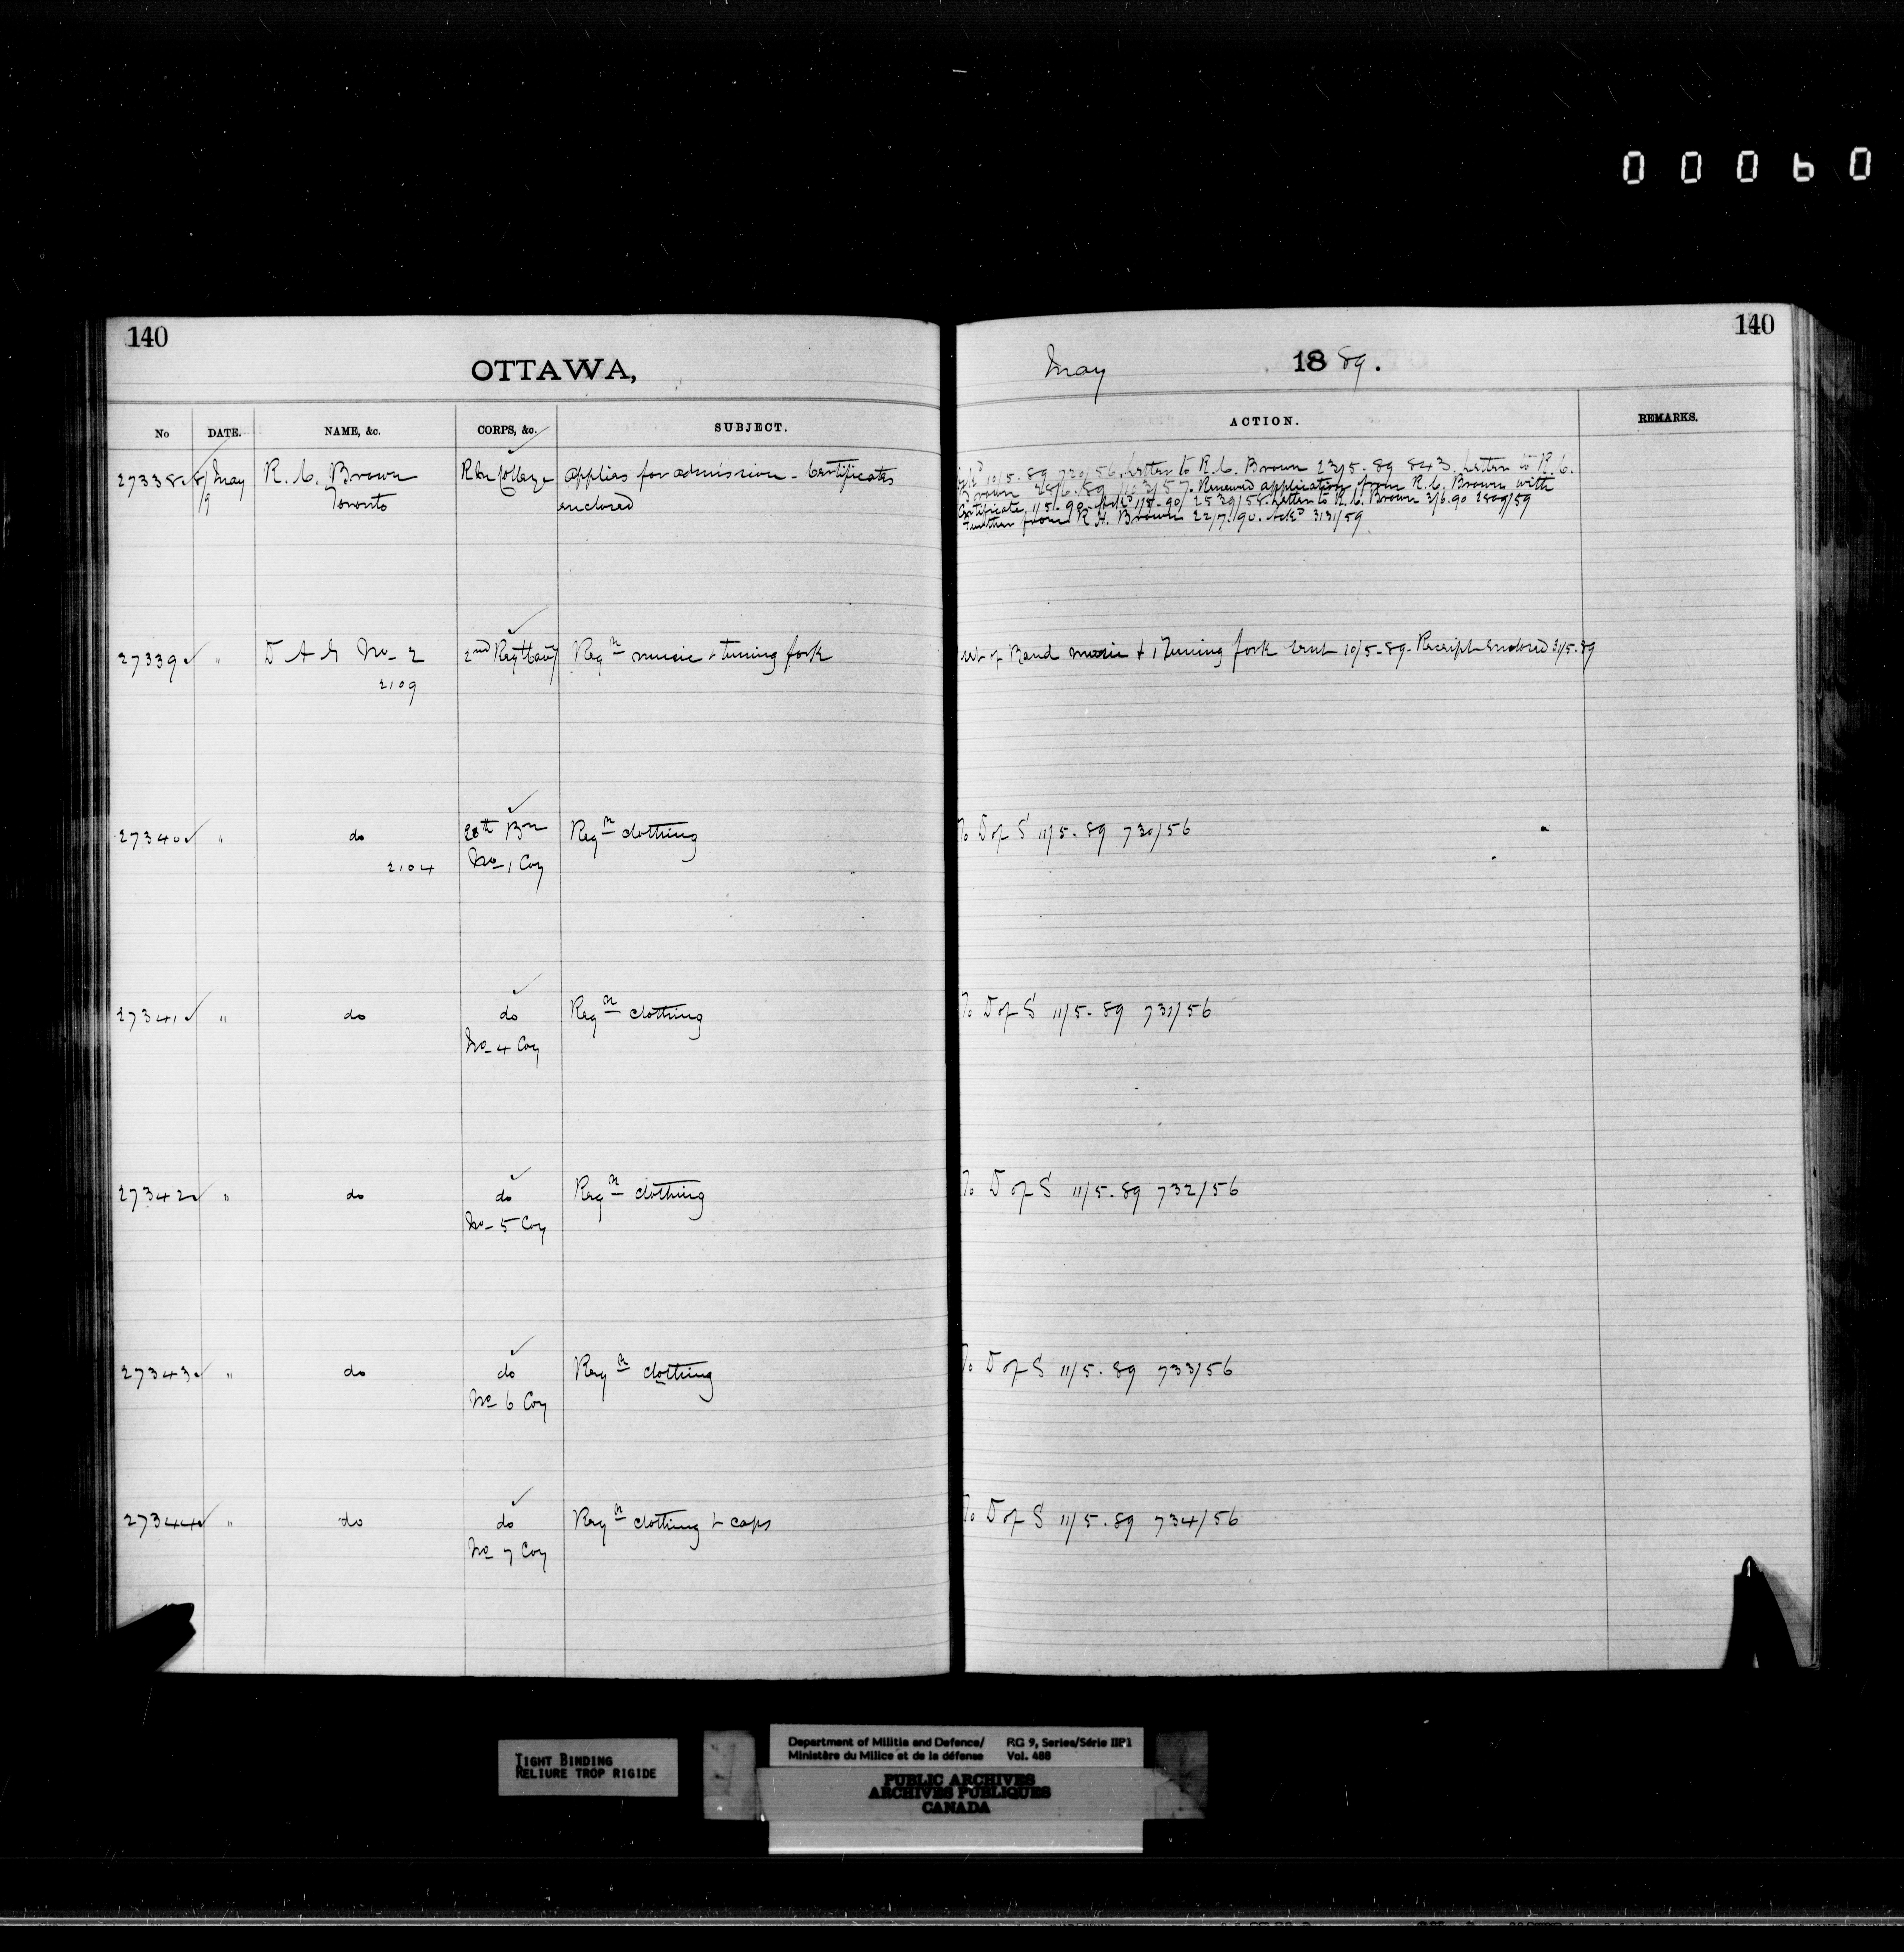 00060
140
140
OTTAWA,
May 1889.
No DATE. NAME, &c. CORPS, &c. SUBJECT. ACTION. REMARKS.
27338 8/ May R. C. Brown R M College applies for admission - Certificates
/9 Toronto enclosed
Ackd 10/5.89 720/56. Letter to R. C. Brown 23/5.89 843. Letter to R. C.
Brown 25/6.89 1103/57. Renewed application from R. C. Brown with
Certificate, 1/5.90. Ackd 1/5.90/ 2530/58. Letter to R. C. Brown 3/6.90 2809/59
Further from R. H. Brown 22/7.90. Ackd 3131/59
27339 " D A G No- 2 2nd Regt Cavy Reqn music & tuning fork
2109
set of Band music & 1 Tuning fork sent 10/5.89. Receipt Enclosed 31/5.89
27340 " do 20th Bn Reqn clothing To D of S 11/5.89 730/56
2104 No- 1 Coy
27341 " do do Reqn clothing To D of S 11/5.89 731/56
No- 4 Coy
27342 " do do Reqn clothing To D of S 11/5.89 732/56
No- 5 Coy
27343 " do do Reqn clothing To D of S 11/5.89 733/56
No 6 Coy
27344 " do do Reqn clothing & caps To D of S 11/5.89 734/56
No 7 Coy
TIGHT BINDING
RELIURE TROP RIGIDE
Department of Militia and Defence/ RG 9, Series/Série IIB1
Ministère du Milice et de la défense Vol. 488
PUBLIC ARCHIVES
ARCHIVES PUBLIQUES
CANADA